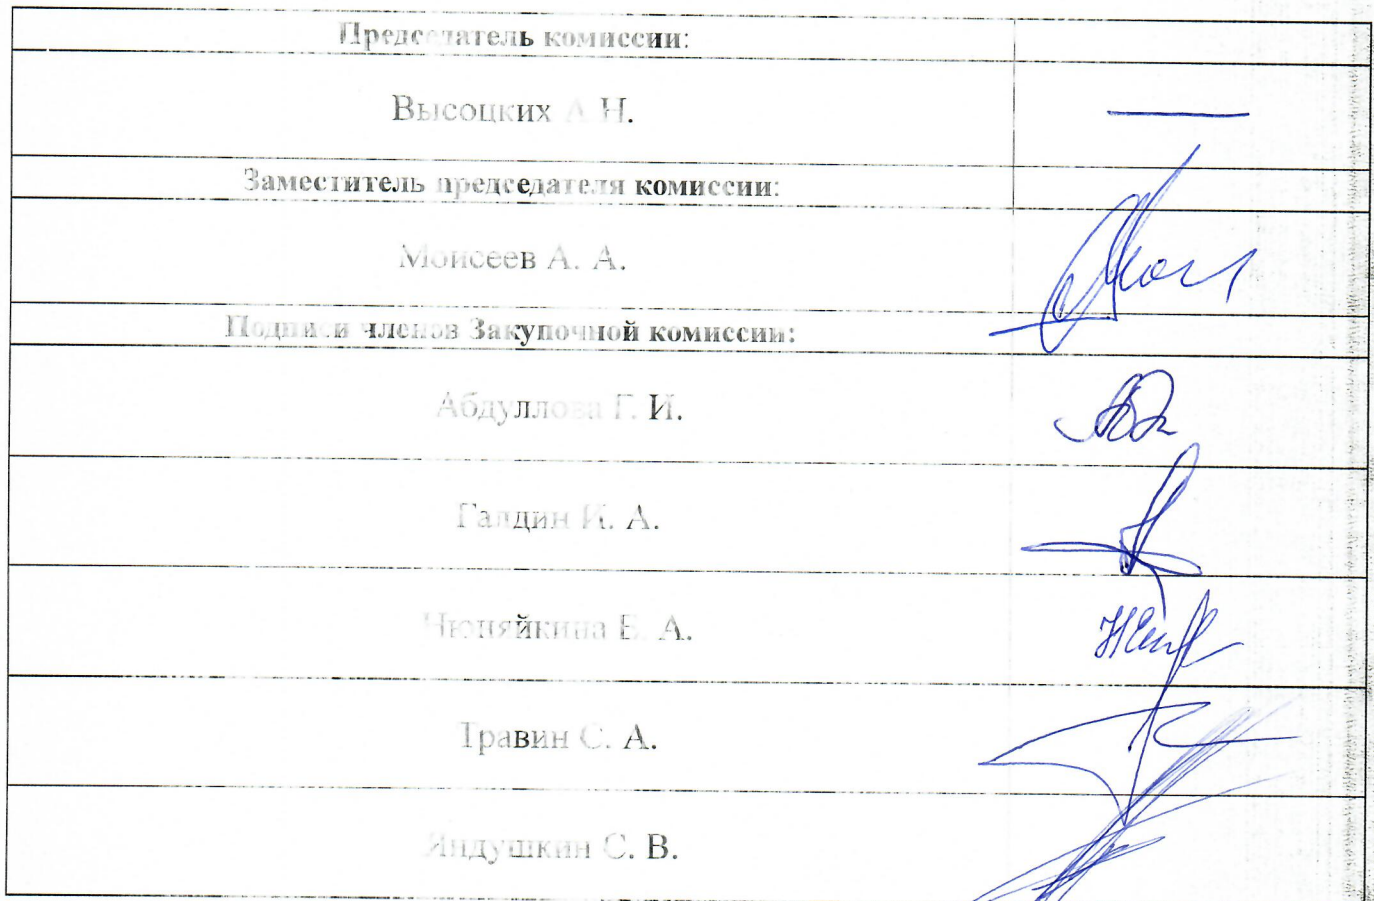 Председатель комиссии:
Высоцких А.Н.
Заместитель председателя комиссии:
Моисеев А. А.
Подписи членов Закупочной комиссии:
Абдуллова Г. И.
Галдин И. А.
Нюняйкина Е. А.
Травин С. А.
Яндушкин С. В.